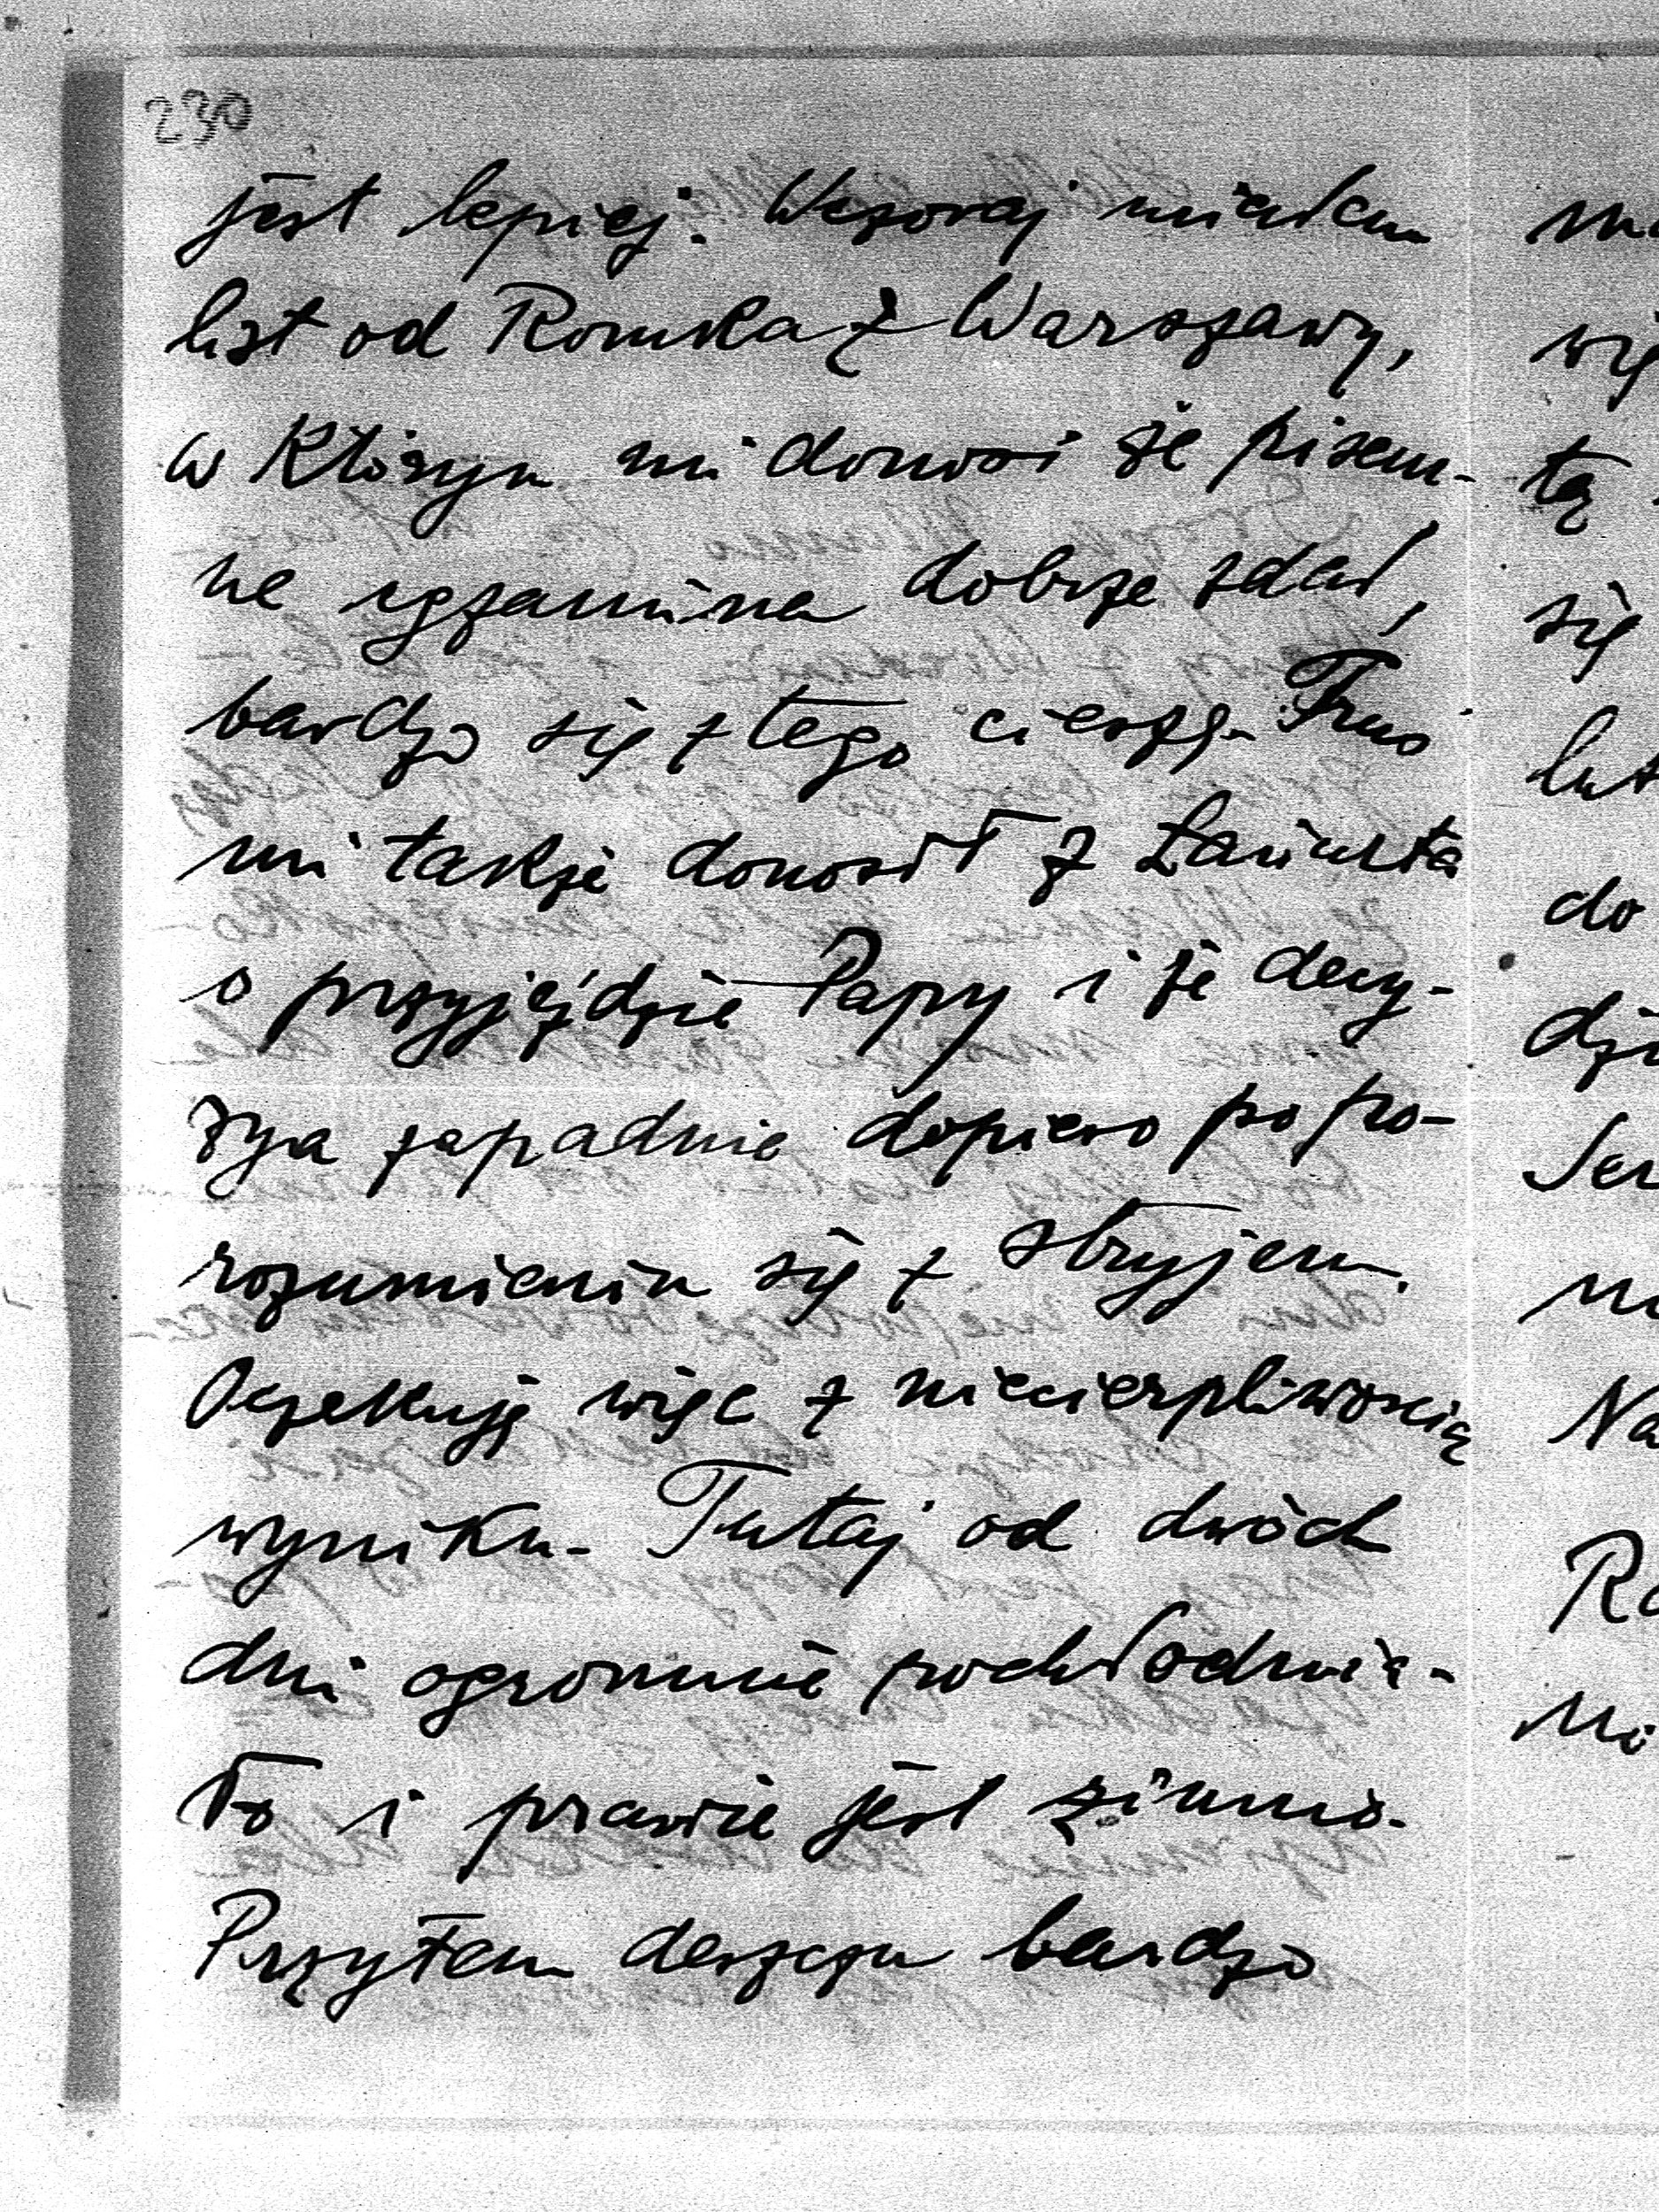 230
jest lepiej. Wczoraj miałam
list od Romka z Warszawy,
w którym mi donosi że pisem-
ne egzamina dobrze zdał,
bardzo się z tego cieszę.
mi także donosił z Łańcuta
o przyjeździe Papy i że decy-
zya zapadnie dopiero po po-
rozumieniu się z stryjem.
Oczekuję więc z niecierpliwością
wyniku. Tutaj od dwóch
dni ogromnie pochłodnia-
ło i prawie jest zimno.
Przytem deszczu bardzo